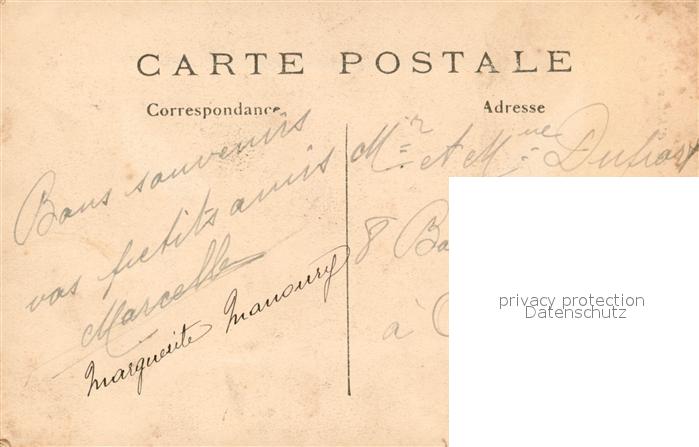 CARTE POSTALE
Correspondance
Adresse
Bons souvenirs
vos petits amis
Marcelle
Marguerite Manoury
Mr et Mme
8
à
privacy protection
Datenschutz